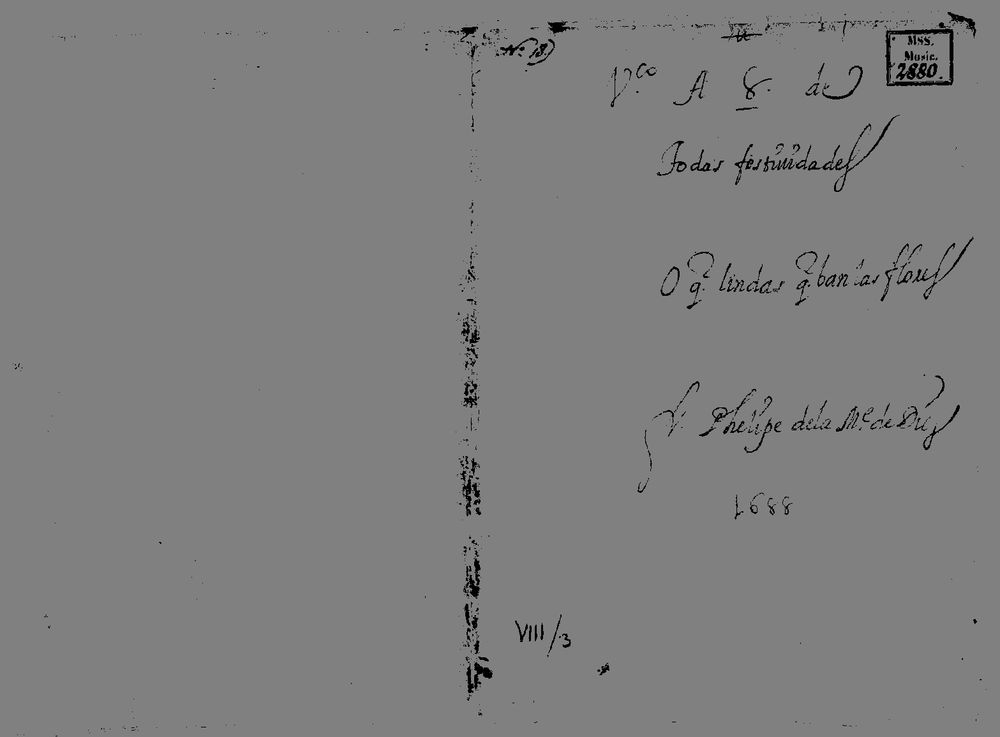 Nº 18)
MSS.
Music.
2880.
V.co A 8. de
Todas festiuidades
O q. lindas q. ban las flores
fr. Phelipe dela M.e de Dios
1688
VIII/3